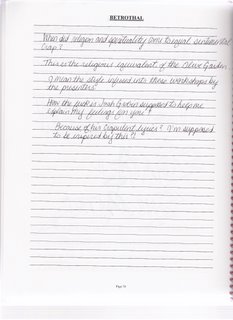 BETROTHAL
When did religion and spirituality omit sentimental
crap?
This is the religious equivalent of the Olive Garden
I mean the style infused into these workshops by
the presenters.
How the fuck is Josh Groban supposed to help me
explain my feelings for you?
Because of his eloquent lyrics? I'm supposed
to be inspired by this?!
Page 14